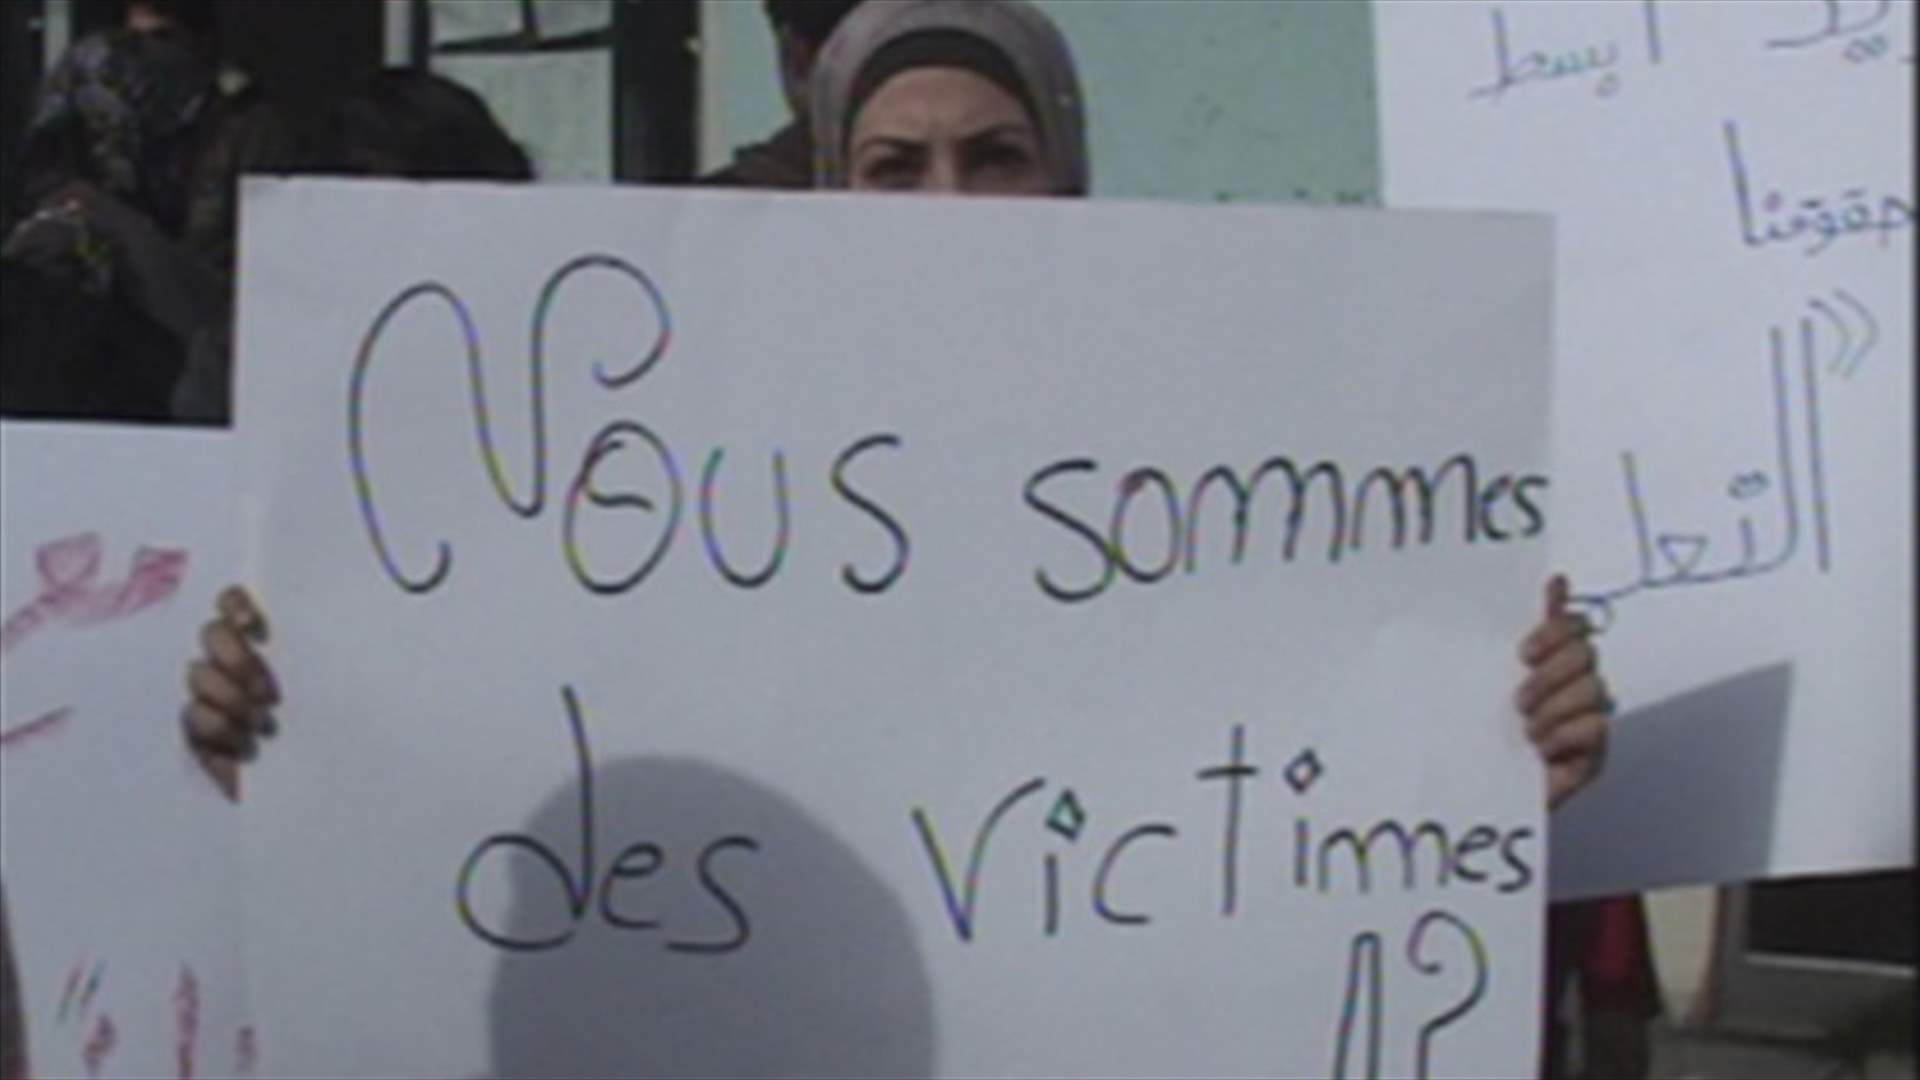 Nous sommes
des victimes
!?
ابسط
حقوقنا
التعلم